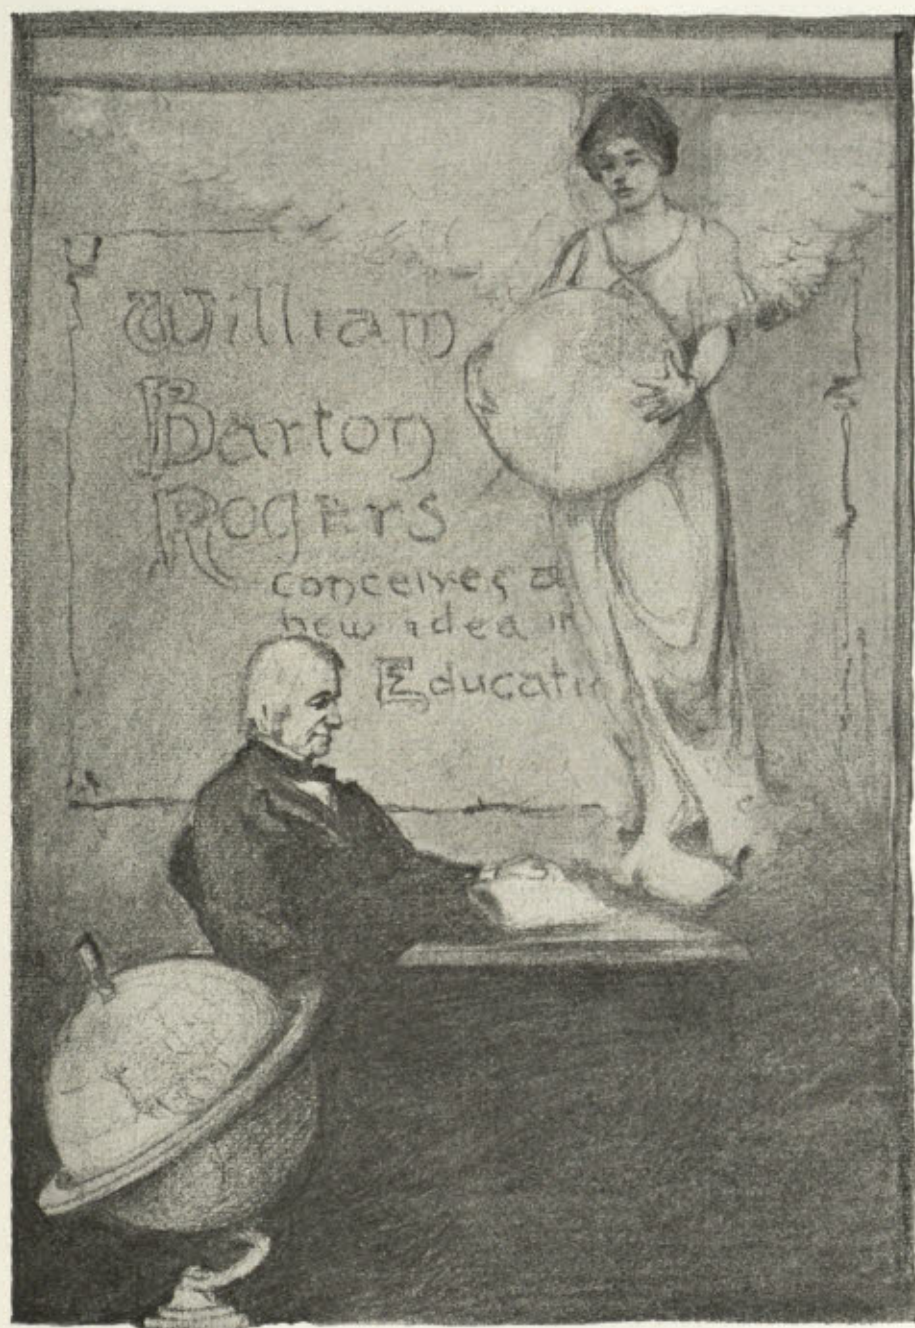 William
Barton
Rogers
conceives a
new idea in
Educati